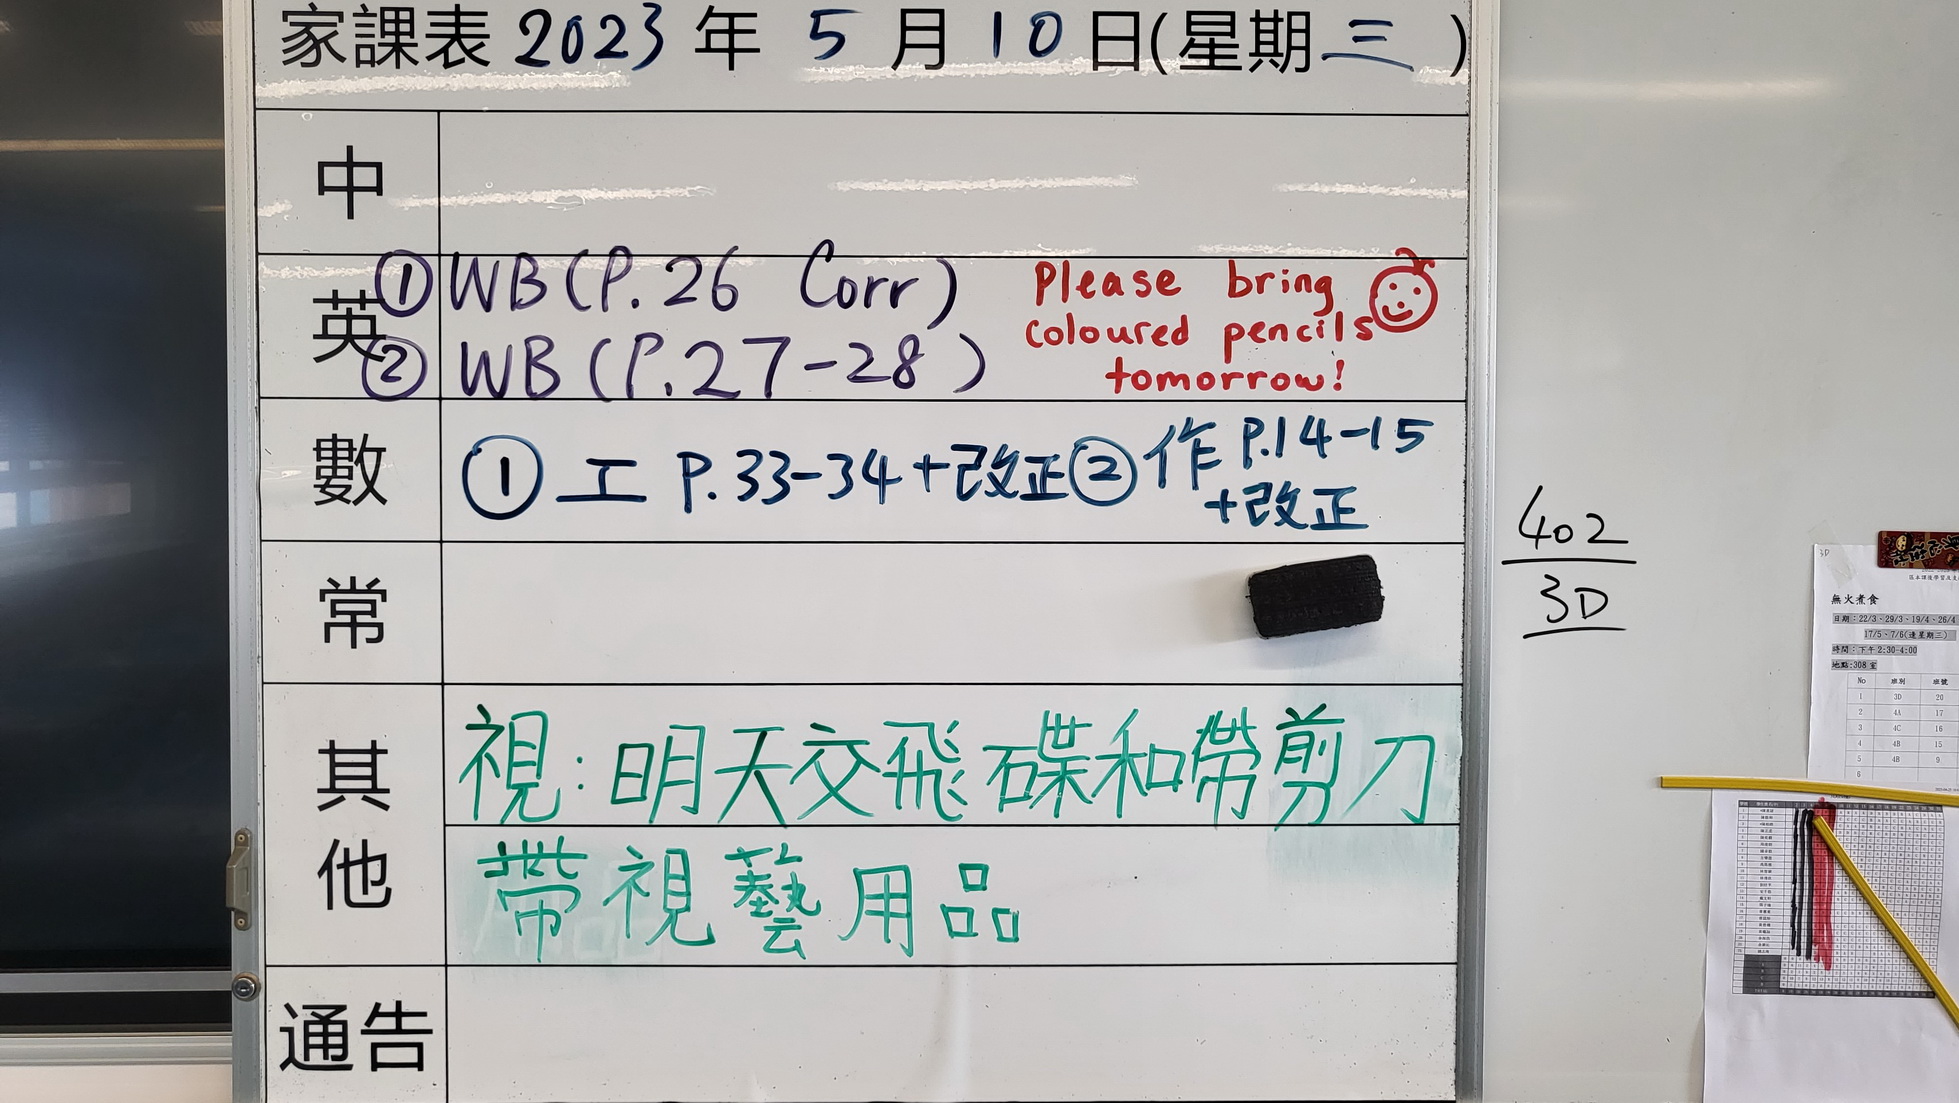 家課表 2023 年 5 月 10 日(星期 三 )
中
英
① WB (P.26 Corr)
② WB (P.27-28)
Please bring
coloured pencils
tomorrow!
數
① 工 P.33-34+改正 ② 作 P.14-15
+改正
常
其他
視:明天交飛碟和帶剪刀
帶視藝用品
通告
402
3D
3D
無火煮食
日期:22/3、29/3、19/4、26/4
17/5、7/6(逢星期三)
時間:下午 2:30-4:00
地點:308 室
No 班別 班號
1 3D 20
2 4A 17
3 4C 16
4 4B 15
5 4B 9
6